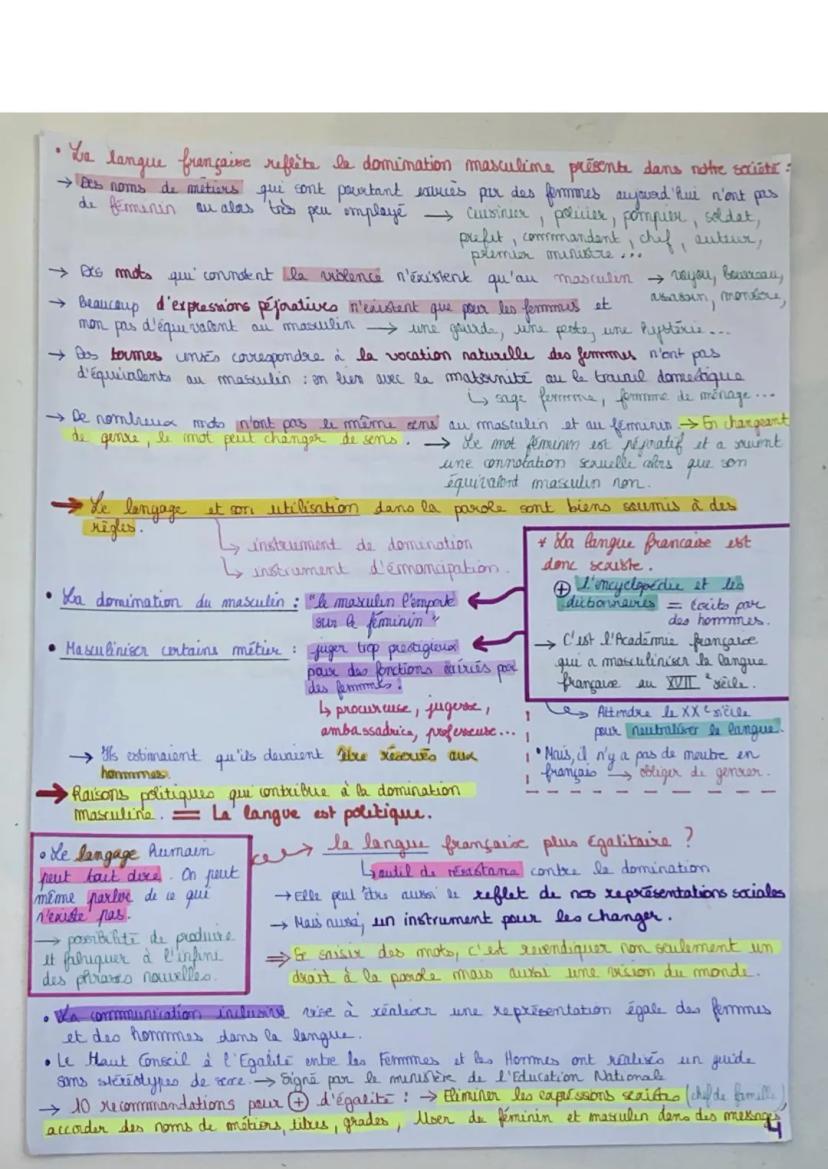 • La langue française reflète la domination masculine présente dans notre société :
→ Des noms de métiers qui sont pourtant exercés par des femmes aujourd'hui n'ont pas
de féminin ou alors très peu employé → cuisinier, policier, pompier, soldat,
préfet, commandant, chef, auteur,
premier ministre...
→ Des mots qui connotent la violence n'existent qu'au masculin → voyou, bourreau,
assassin, monstre,
→ Beaucoup d'expressions péjoratives n'existent que pour les femmes et
non pas d'équivalent au masculin → une gourde, une peste, une hystérie...
→ Des termes censés correspondre à la vocation naturelle des femmes n'ont pas
d'équivalents au masculin : en lien avec la maternité ou le travail domestique
↳ sage femme, femme de ménage...
→ De nombreux mots n'ont pas le même sens au masculin et au féminin → En changeant
de genre, le mot peut changer de sens. → Le mot féminin est péjoratif et a souvent
une connotation sexuelle alors que son
équivalent masculin non.
→ Le langage et son utilisation dans la parole sont biens soumis à des
règles.
↳ instrument de domination
↳ instrument d'émancipation.
• La domination du masculin : "le masculin l'emporte
sur le féminin"
• Masculiniser certains métier : juger trop prestigieux
pour des fonctions exercées par
des femmes.
↳ procureuse, jugesse,
ambassadrice, professeuse...
→ Ils estimaient qu'ils devaient être réservés aux
hommes.
→ Raisons politiques qui contribue à la domination
masculine. = La langue est politique.
* La langue francaise est
donc sexiste.
⊕ L'encyclopédie et les
dictionnaires = écrits par
des hommes.
→ C'est l'Académie française
qui a masculiniser la langue
française au XVII e siècle.
↳ Attendre le XX e siècle
pour neutraliser la langue.
• Mais, il n'y a pas de neutre en
français → obliger de genrer.
• Le langage humain
peut tout dire. On peut
même parler de ce qui
n'existe pas.
→ possibilité de produire
et fabriquer à l'infini
des phrases nouvelles.
→ la langue française plus égalitaire ?
↳ outil de résistance contre la domination
→ Elle peut être aussi le reflet de nos représentations sociales
→ Mais aussi, un instrument pour les changer.
⇒ Se saisir des mots, c'est revendiquer non seulement un
droit à la parole mais aussi une vision du monde.
• La communication inclusive vise à réaliser une représentation égale des femmes
et des hommes dans la langue.
• Le Haut Conseil à l'Egalité entre les Femmes et les Hommes ont réalisés un guide
sans stéréotypes de sexe. → Signé par le ministère de l'Education Nationale
→ 10 recommandations pour ⊕ d'égalité : → Eliminer les expressions sexistes (chef de famille)
accorder des noms de métiers, titres, grades, User de féminin et masculin dans des messages,
4